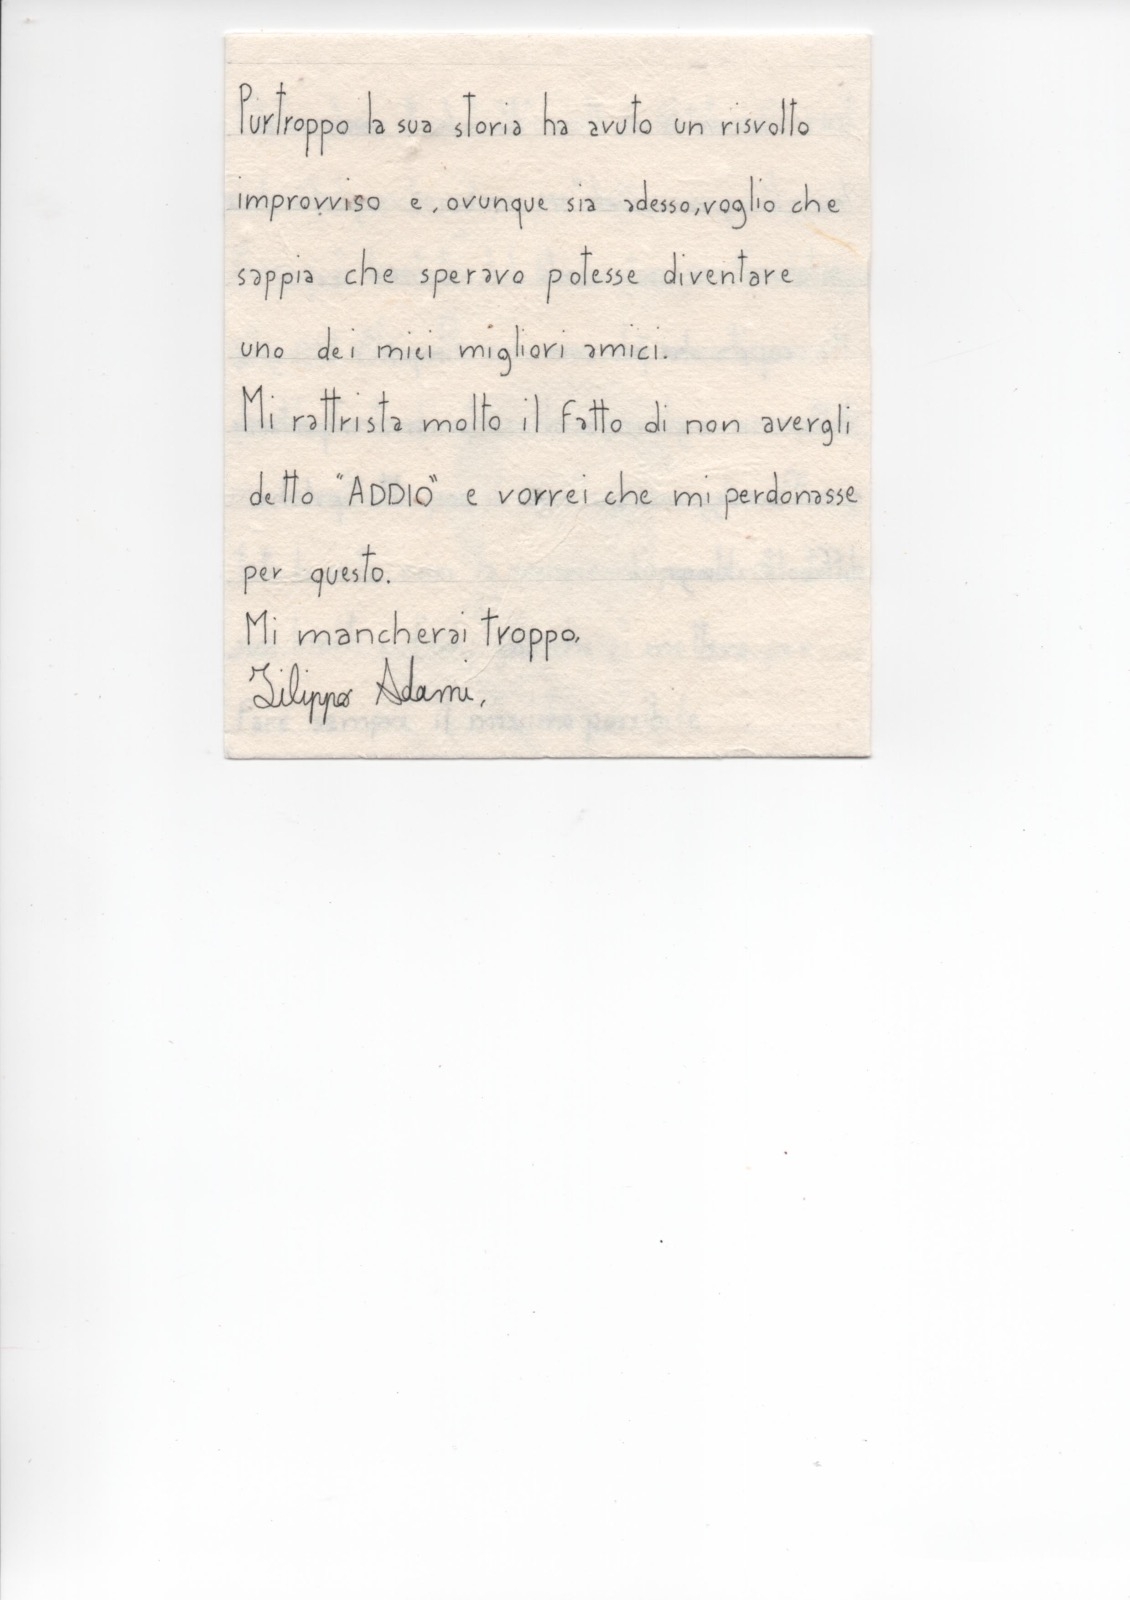 Purtroppo la sua storia ha avuto un risvolto
improvviso e, ovunque sia adesso, voglio che
sappia che speravo potesse diventare
uno dei miei migliori amici.
Mi rattrista molto il fatto di non avergli
detto "ADDIO" e vorrei che mi perdonasse
per questo.
Mi mancherai troppo,
Filippo Adami,